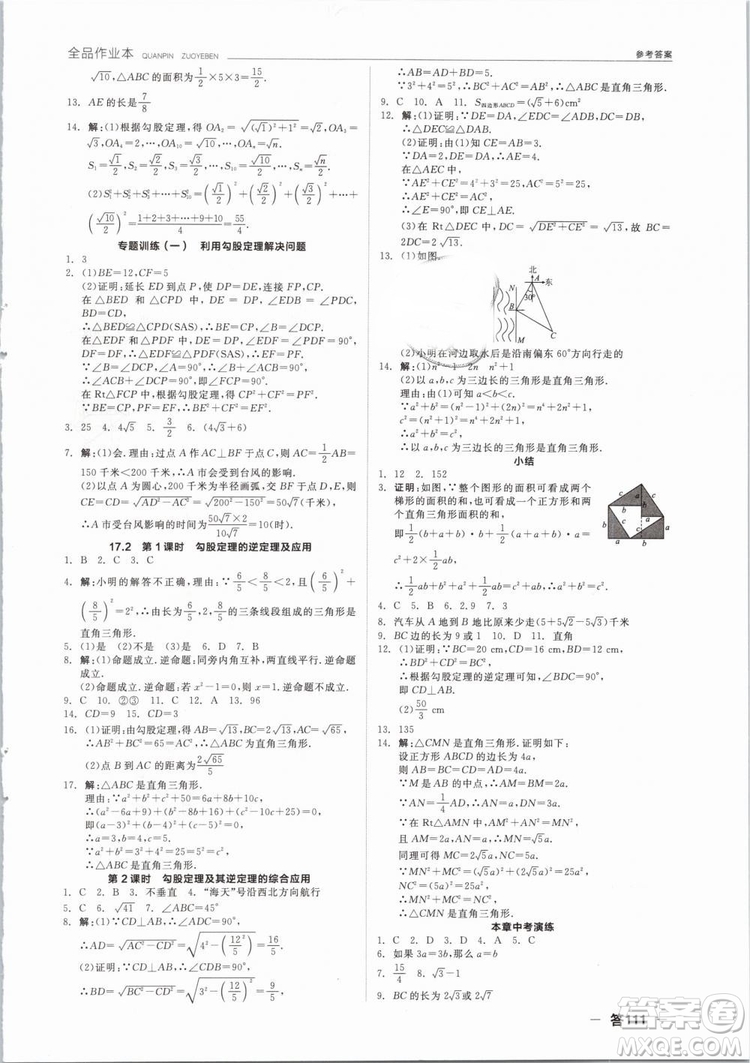 全品作业本 QUANPIN ZUOYEBEN
参考答案
√10,△ABC的面积为1/2×5×3=15/2.
13. AE的长是7/8
14. 解:(1)根据勾股定理,得OA₂=√((√1)²+1²)=√2,
OA₃=√3,OA₄=√4,…,OA₁₀=√10,…,OAₙ=√n.
S₁=√1/2,S₂=√2/2,S₃=√3/2,…,S₁₀=√10/2,…,Sₙ=√n/2.
(2)S₁²+S₂²+S₃²+…+S₁₀²=(√1/2)²+(√2/2)²+(√3/2)²+…+
(√10/2)²=(1+2+3+…+9+10)/4=55/4.
专题训练(一) 利用勾股定理解决问题
1. 3
2. (1)BE=12,CF=5
(2)证明:延长ED到点P,使DP=DE,连接FP,CP.
在△BED和△CPD中,∵DE=DP,∠BDE=∠PDC,
BD=CD,
∴△BED≌△CPD(SAS),∴BE=CP,∠B=∠DCP.
在△EDF和△PDF中,∵DE=DP,∠EDF=∠PDF=90°,
DF=DF,∴△EDF≌△PDF(SAS),∴EF=FP.
∵∠B=∠DCP,∠A=90°,∴∠B+∠ACB=90°,
∴∠ACB+∠DCP=90°,即∠FCP=90°.
在Rt△FCP中,根据勾股定理,得CF²+CP²=PF².
∵BE=CP,PF=EF,∴BE²+CF²=EF².
3. 25 4. 4√5 5. 3/2 6. (4√3+6)
7. 解:(1)受影响.理由:过点A作AC⊥BF于点C,则AC=1/2AB=
150千米<200千米,∴A市会受到台风的影响.
(2)以点A为圆心,200千米为半径画弧,交BF于点D,E,则CD
=√(AD²−AC²)=√(200²−150²)=50√7(千米),
∴A市受台风影响的时间为(50√7×2)/(10√7)=10(时).
17.2 第1课时 勾股定理的逆定理及应用
1. B 2. C 3. C
4. 解:小明的解答不正确,理由:∵6/5<8/5<2,且(6/5)²+
(8/5)²=2²,∴长度为6/5,8/5,2的三条线段组成的三角形是
直角三角形.
5. (1)是 (2)不是 (3)是 6. D 7. C
8. 解:(1)命题成立.逆命题:同旁内角互补,两直线平行.
逆命题成立.
(2)命题成立.逆命题:若x²−x=0,则x=1.逆命题不成立.
9. C 10. ②③ 11. C 12. A 13. 96
14. CD=9 15. CD=3
16. (1)证明:由勾股定理,得AB=√13,BC=2√13,AC=√65,
∴AB²+BC²=AC²,∴△ABC是直角三角形.
(2)点B到边AC的距离为2√65/5
17. 解:△ABC是直角三角形.
理由:∵a²+b²+c²+50=6a+8b+10c,
∴a²+b²+c²−6a−8b−10c+50=0,
即(a−3)²+(b−4)²+(c−5)²=0,
∴a=3,b=4,c=5.
∵3²+4²=5²,即a²+b²=c²,
∴△ABC是直角三角形.
第2课时 勾股定理及其逆定理的综合应用
1. C 2. B 3. 不垂直 4. “海天”号沿西北方向航行
5. C 6. √41 7. C
8. 解:(1)∵CD⊥AB,∴∠BDC=∠ADC=90°,
∴AD=√(AC²−CD²)=√(4²−(12/5)²)=16/5.
(2)证明:∵∠BDC=90°,
∴BD=√(BC²−CD²)=√(3²−(12/5)²)=9/5,
∴AB=AD+BD=5.
∵3²+4²=5²,∴△ABC是直角三角形.
9. C 10. A 11. S四边形ABCD=(√5+6)cm²
12. 解:(1)证明:∵DE=DA,EC=AB,DC=DB,
∴△DEC≌△DAB.
(2)证明:由(1)知CE=AB=3.
∵DA=2,DE=DA,∴DE=2,
∴AE=4.
在△AEC中,
∵AE²+CE²=4²+3²=25,AC²=5²=25,
∴AE²+CE²=AC²,
∴∠E=90°,即CE⊥AE.
(3)在Rt△DEC中,DC=√(DE²+CE²)=√13,
∴BC=2√13.
13. (1)如图.
北
A 东
N
30°
B
M C
(2)小明在河边取水后是沿南偏东60°方向行走的
14. 解:(1)n²−1 2n n²+1
(2)以a,b,c为三边长的三角形是直角三角形.
理由:由已知可得a<b<c.
∵a²+b²=(n²−1)²+(2n)²=n⁴+2n²+1,
c²=(n²+1)²=n⁴+2n²+1,
∴a²+b²=c²,
∴以a,b,c为三边长的三角形是直角三角形.
小结
1. 12 2. 152
3. 证明:如图,∵整个图形的面积可以看成两个
梯形的面积的和,也可以看成一个正方形和两
个直角三角形的面积的和,
即1/2(b+a)·b+1/2(a+b)·a=1/2ab×2+
c²+1/2ab+b²+1/2a²+1/2ab=ab+c²,
∴a²+b²=c².
4. C 5. B 6. 2.9 7. 3
8. 汽车从A地到B地比原来少走(5+5√2−5√3)千米
9. BC边的长为9或1 10. D 11. 直角
12. (1)证明:∵BC=20 cm,CD=16 cm,BD=12 cm,
满足BD²+CD²=BC²,
∴根据勾股定理的逆定理可知,∠BDC=90°,
即CD⊥AB.
(2)50/3 cm
13. 135
14. 解:△CMN是直角三角形.证明如下:
设正方形ABCD的边长为4a,
则AB=BC=CD=AD=4a.
∵M是AB的中点,∴AM=BM=2a.
∵AN=1/4AD,AD=4a,∴AN=a,DN=3a.
∵在Rt△AMN中,MN²=AM²+AN²,且AM=2a,AN=a,
∴MN=√5a.
同理可得MC=2√5a,NC=5a.
∵MN²+MC²=(√5a)²+(2√5a)²=25a²,
NC²=(5a)²=25a²,
∴MN²+MC²=NC²,
∴△CMN是直角三角形.
本章中考演练
1. C 2. D 3. D 4. A 5. C
6. 如果3a=3b,那么a=b
7. 15/4 8. √3−1
9. BC的长为2√3或2√7
答111
作业精灵